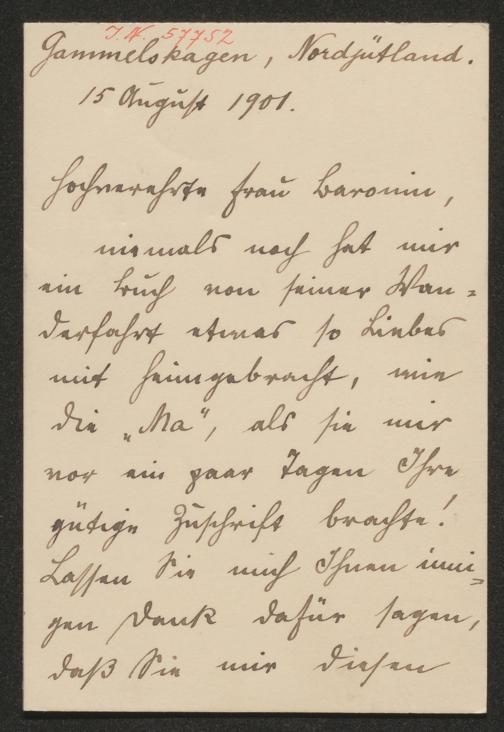 J.N. 57752
Gammelskagen, Nordjütland.
15 August 1901.
Hochverehrte Frau Baronin,
niemals noch hat mir
ein Buch von seiner Wan=
derfahrt etwas so Liebes
mit heimgebracht, wie
die „Ma“, als sie mir
vor ein paar Tagen Ihre
gütige Zuschrift brachte!
Lassen Sie mich Ihnen inni=
gen Dank dafür sagen,
daß Sie mir diesen